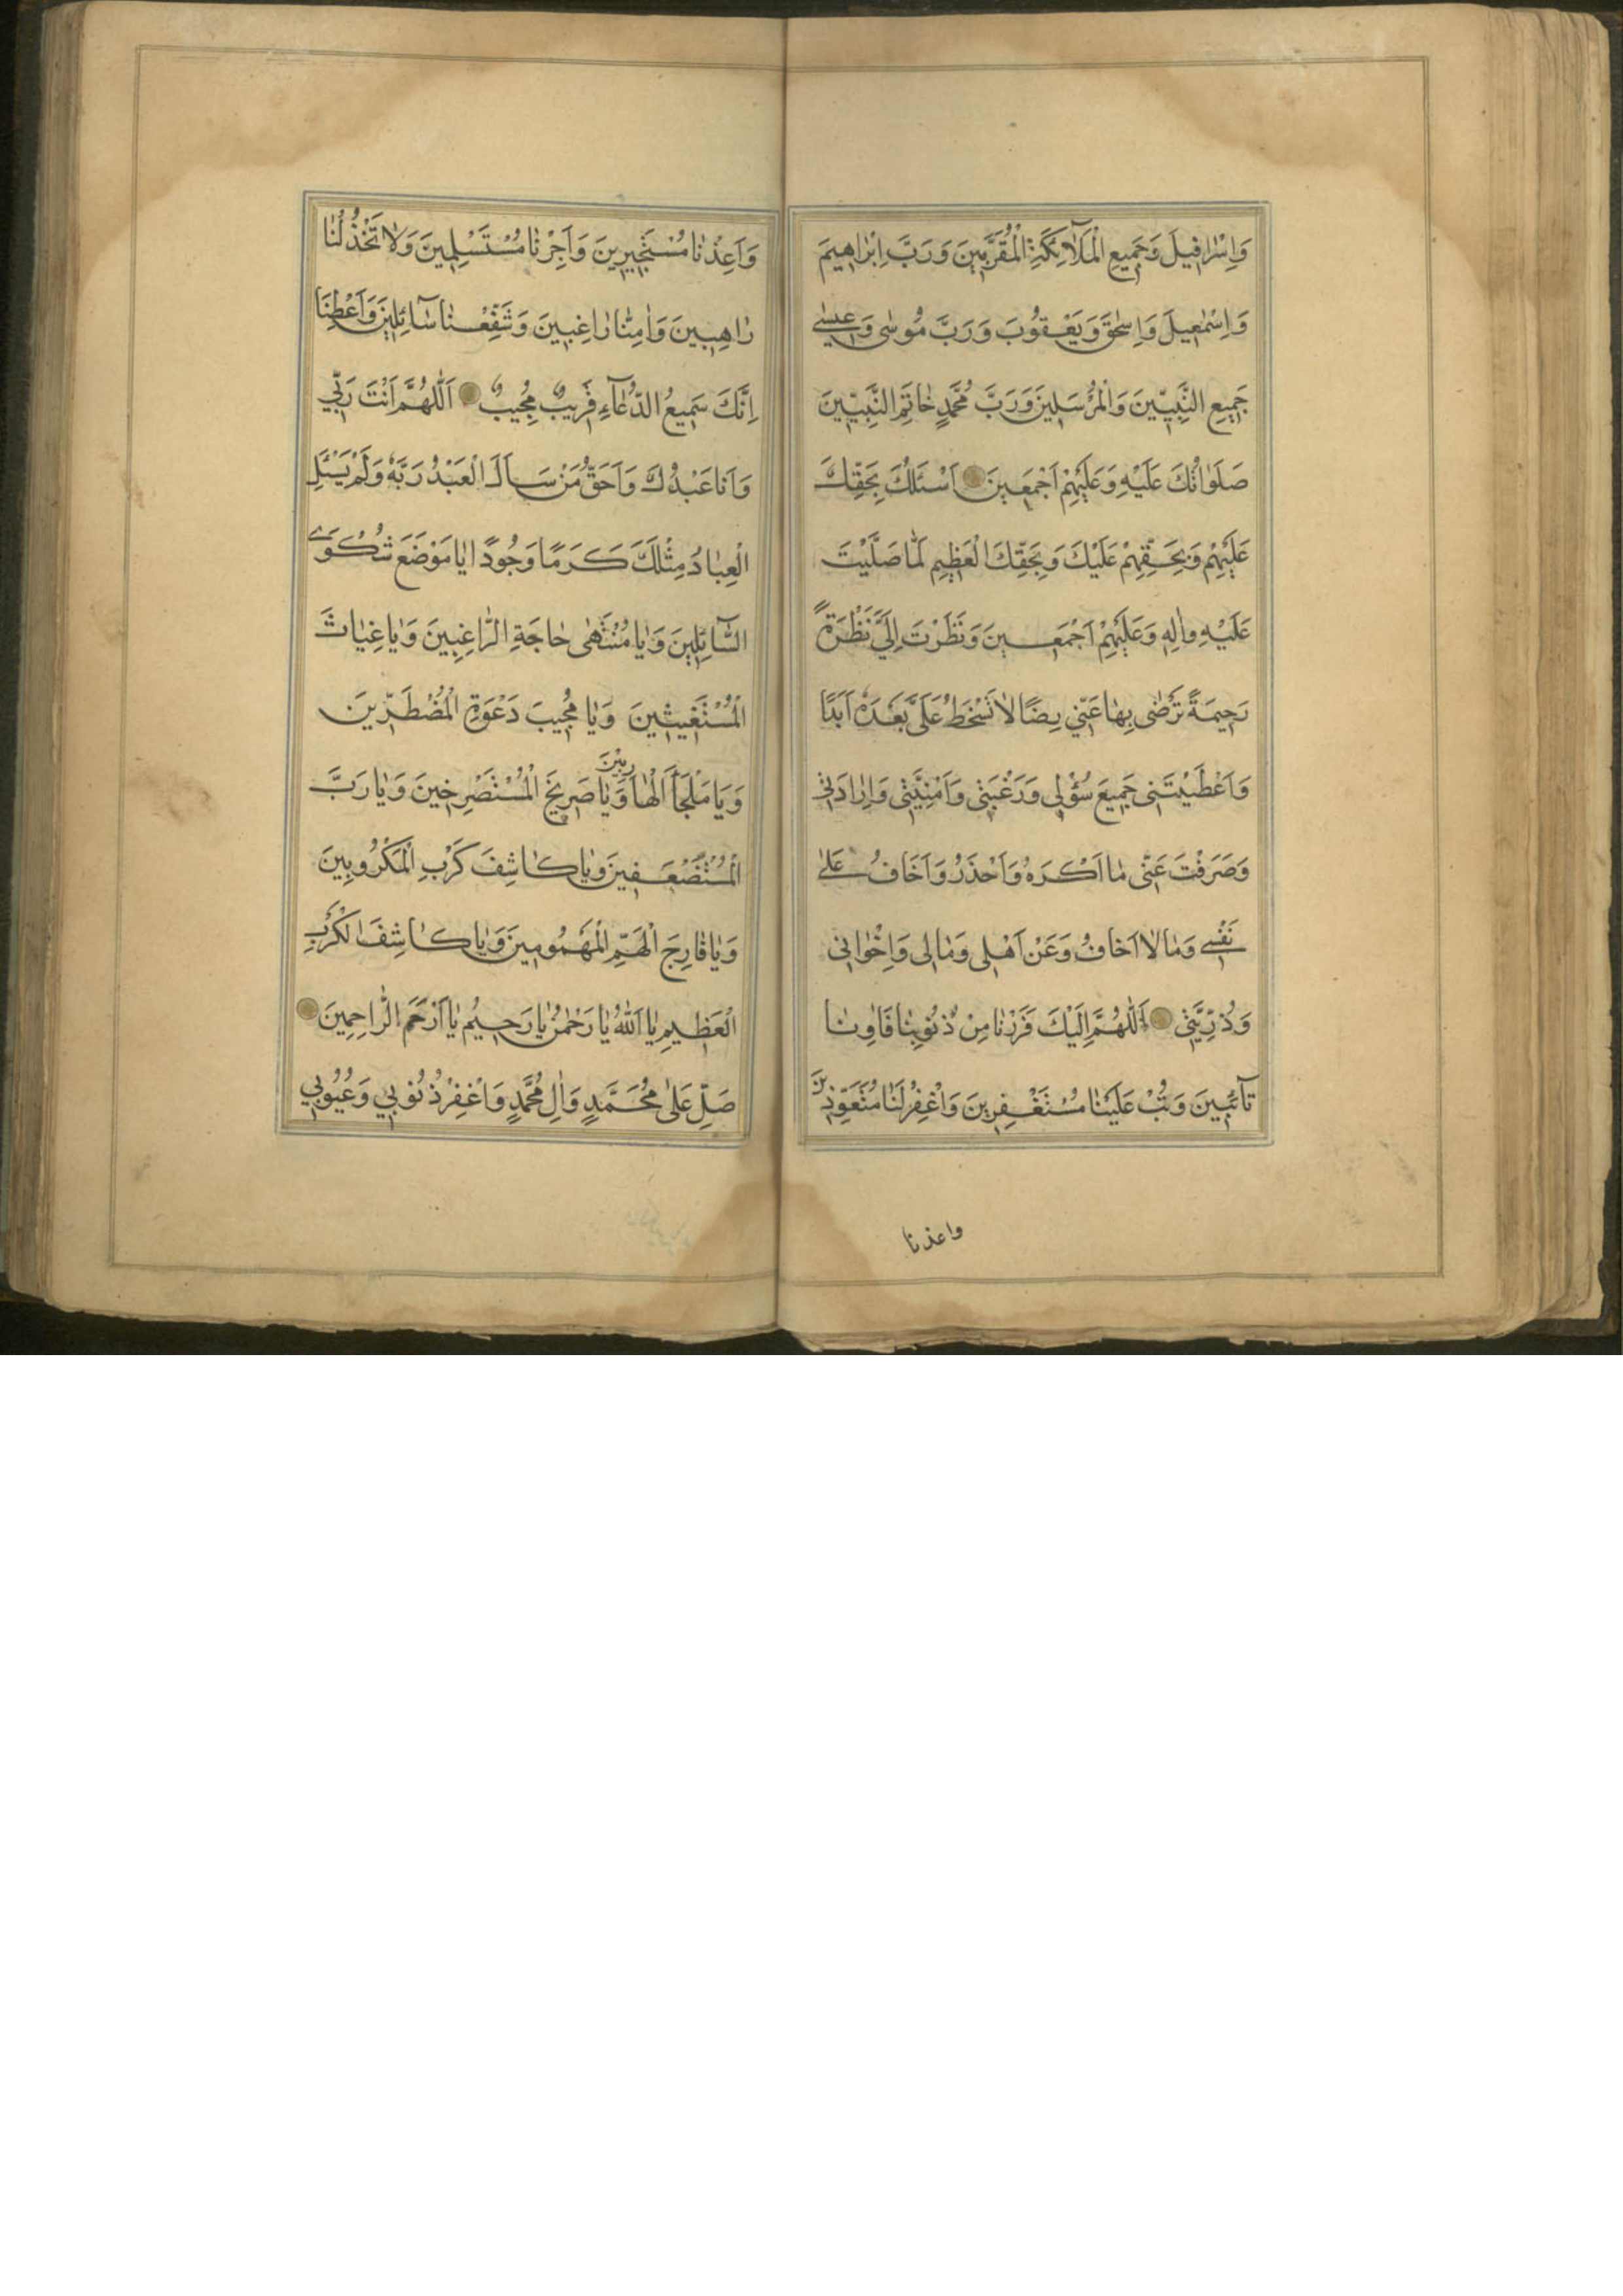 وَاِسْرٰافِيلَ وَجَمِيعِ الْمَلٰآئِكَةِ الْمُقَرَّبِينَ وَرَبَّ اِبْرٰاهِيمَ
وَاِسْمٰعِيلَ وَاِسْحٰقَ وَيَعْقُوبَ وَرَبَّ مُوسٰى وَعِيسٰى
جَمِيعِ النَّبِيّينَ وَالْمُرْسَلِينَ وَرَبَّ مُحَمَّدٍ خٰاتَمِ النَّبِيّينَ
صَلَوٰاتُكَ عَلَيْهِ وَعَلَيْهِمْ اَجْمَعِينَ اَسْئَلُكَ بِحَقِّكَ
عَلَيْهِمْ وَبِحَقِّهِمْ عَلَيْكَ وَبِحَقِّكَ الْعَظِيمِ لَمّٰا صَلَّيْتَ
عَلَيْهِ وَاٰلِهِ وَعَلَيْهِمْ اَجْمَعِينَ وَنَظَرْتَ اِلَيَّ نَظْرَةً
رَحِيمَةً تَرْضٰى بِهٰا عَنّي رِضًا لٰا تَسْخَطُ عَلَيَّ بَعْدَهُ اَبَدًا
وَاَعْطَيْتَنى جَمِيعَ سُؤْلِي وَرَغْبَتِى وَاُمْنِيَّتِى وَاِرٰادَتِى
وَصَرَفْتَ عَنّى مٰا اَكْرَهُ وَاَحْذَرُ وَاَخَافُ عَلىٰ
نَفْسِى وَمٰا لٰا اَخٰافُ وَعَنْ اَهْلِى وَمٰالِى وَاِخْوٰانِى
وَذُرِّيَّتِى اَللّٰهُمَّ اِلَيْكَ فَرَرْنٰا مِنْ ذُنُوبِنٰا فَاٰوِنٰا
تٰآئِبِينَ وَتُبْ عَلَيْنٰا مُسْتَغْفِرِينَ وَاغْفِرْ لَنٰا مُتَعَوِّذِينَ
واعذنا
وَاَعِذْنٰا مُسْتَجِيرِينَ وَاَجِرْنٰا مُسْتَسْلِمِينَ وَلٰا تَخْذُلْنٰا
رٰاهِبِينَ وَاٰمِنّٰا رٰاغِبِينَ وَشَفِّعْنٰا سٰآئِلِينَ وَاَعْطِنَا
اِنَّكَ سَمِيعُ الدُّعٰآءِ قَرِيبٌ مُجِيبٌ اَللّٰهُمَّ اَنْتَ رَبّي
وَاَنَا عَبْدُكَ وَاَحَقُّ مَنْ سَاَلَ الْعَبْدُ رَبَّهُ وَلَمْ يَسْئَلِ
الْعِبٰادُ مِثْلَكَ كَرَمًا وَجُودًا يٰا مَوْضَعَ شَكْوَى
السّٰآئِلِينَ وَيٰا مُنْتَهٰى حٰاجَةِ الرّٰاغِبِينَ وَيٰا غِيٰاثَ
الْمُسْتَغِيثِينَ وَيٰا مُجِيبَ دَعْوَةِ الْمُضْطَرّينَ
وَيٰا مَلْجَاَ الْهٰارِبِيْنَ وَيٰا صَرِيخَ الْمُسْتَصْرِخِينَ وَيٰا رَبَّ
الْمُسْتَضْعَفِينَ وَيٰا كٰاشِفَ كَرْبِ الْمَكْرُوبِينَ
وَيٰا فٰارِجَ الْهَمِّ الْمَهْمُومِينَ وَيٰا كٰاشِفَ الْكَرْبِ
الْعَظِيمِ يٰا اَللّٰهُ يٰا رَحْمٰنُ يٰا رَحِيمُ يٰا اَرْحَمَ الرّٰاحِمِينَ
صَلِّ عَلىٰ مُحَمَّدٍ وَاٰلِ مُحَمَّدٍ وَاغْفِرْ ذُنُوبي وَعُيُوبي